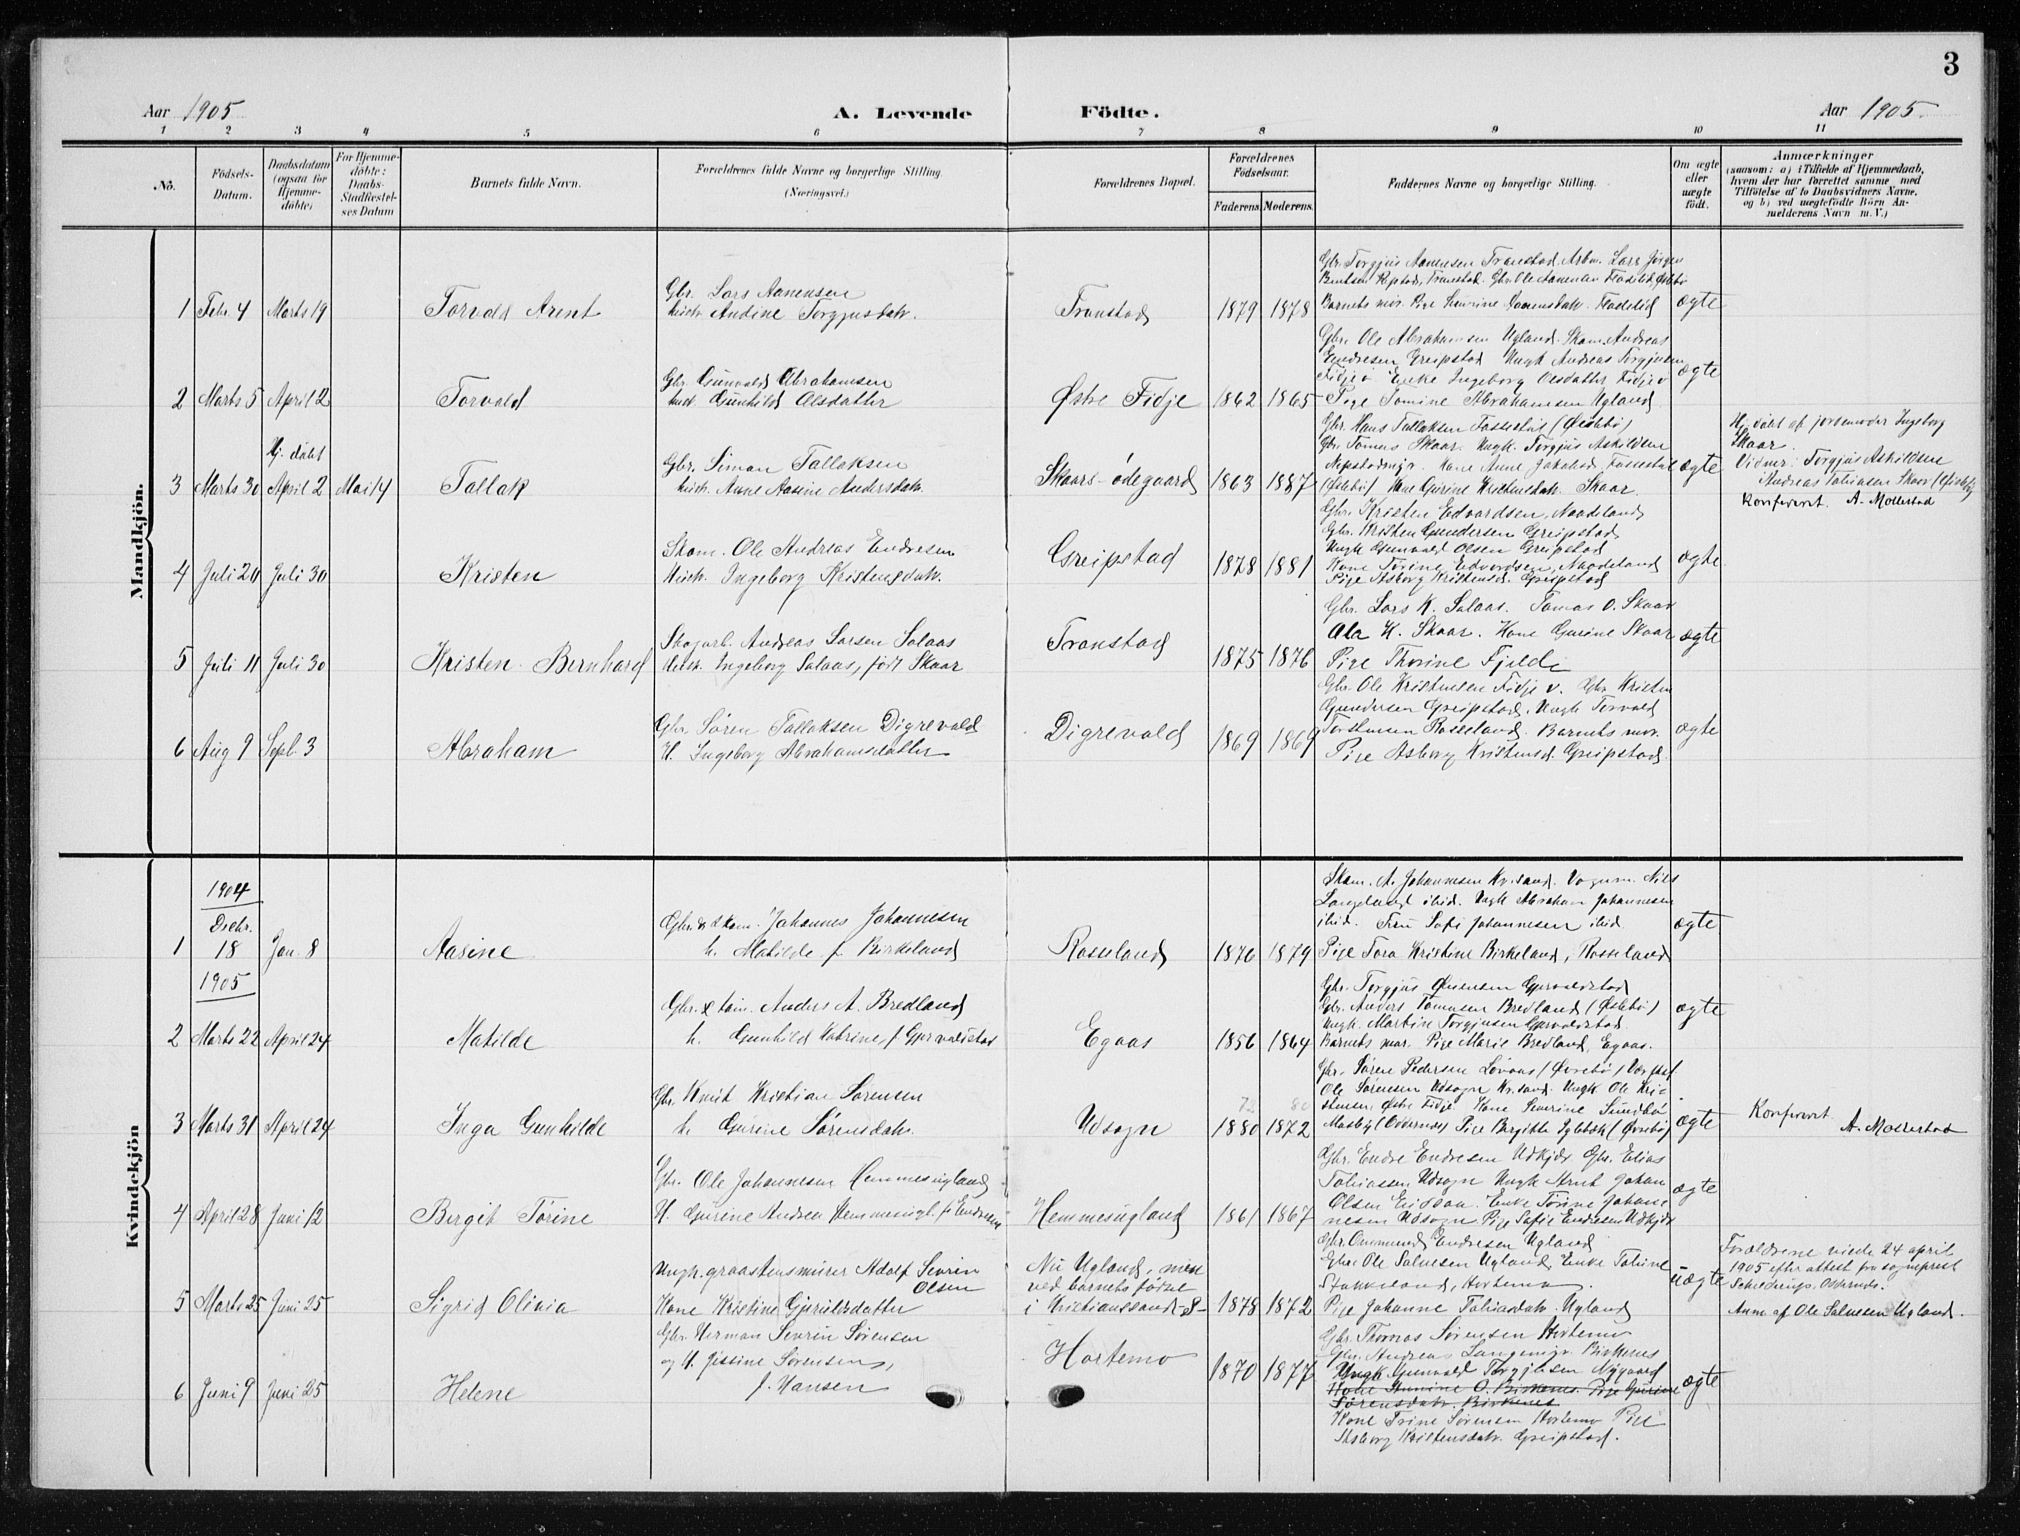 3
Aar 1905
A. Levende
Födte.
Aar 1905.
1 2 3 4 5 6 7 8 9 10 11
No.
Födsels-
Datum.
Daabsdatum
(ogsaa for
Hjemme-
döbte)
For Hjemme-
döbte:
Daabs-
Stadfæstel-
ses Datum
Barnets fulde Navn.
Forældrenes fulde Navne og borgerlige Stilling.
(Næringsvei.)
Forældrenes Bopæl.
Forældrenes
Födselsaar.
Faderens. Moderens.
Faddernes Navne og borgerlige Stilling.
Om ægte
eller
uægte
födt.
Anmærkninger
(saasom: a) i Tilfælde af Hjemmedaab,
hvem der har forrettet samme med
Tilföielse af to Daabsvidners Navne,
og b) ved uægtefödte Börn An-
melderens Navn m. V.)
Mandkjön.
1 Febr. 4 Marts 19
Torvald Arent
Gbr. Lars Aanensen
Hust. Andine Torgjusdatr.
Tronstad
1879 1878
Gbr. Torgjus Aanensen Tronstad. Arbm. Lars Jørgen
Barnets mor. Pige
ægte
2 Marts 5 April 2
Torvald
Gbr. Gunvald Abrahamsen
Hust. Gunhild Olsdatter
Østre Fidje
1862 1865
Gbr. Ole Abrahamsen Ugland. Skom. Andreas
Endresen Greipstad Ungk Andreas Torgjusen
Fidje v Enke Ingeborg Olsdatter Fidje v
Pige Tomine Abrahamsen Ugland.
ægte
3 Marts 30
Hj. døbt
April 2 Mai 14
Tallak
Gbr. Simon Tallaksen
Hust. Anne Aasine Andersdatr.
Skaars-ødegaard
1863 1887
Gbr. Hans Tallaksen
Gbr. Tomas Skaar. Ungk. Torgjus Askildsen
Kone Anne
(Øislebø) Kone Gurine Kristensdatr. Skaar.
ægte
Hj. døbt af jordemoder Ingeborg
Skaar
Vidner: Torgjus Askildsen
Andreas Tobiassen Skaar (Øislebø)
Konfereret. A. Mollestad
4 Juli 20 Juli 30
Kristen
Skom. Ole Andreas Endresen
Hust. Ingeborg Kristensdatr.
Greipstad
1878 1881
Gbr. Kristen Edvardsen, Naadeland
Gbr. Kristen Gundersen Greipstad
Ungk Gunvald Olsen Greipstad
Kone Torine Edvardsen, Naadeland
Pige Asborg Kristensd. Greipstad
ægte
5 Juli 11 Juli 30
Kristen Bernhard
Skogarb. Andreas Larsen Salaas
Hust. Ingeborg Salaas, født Skaar
Tronstad
1875 1876
Gbr. Lars K. Salaas. Tomas O. Skaar
H. Skaar. Kone Gurine Skaar
Pige Thorine Fjelde
ægte
6 Aug 9 Sept. 3
Abraham
Gbr. Søren Tallaksen Digrevald
H. Ingeborg Abrahamsdatter
Digrevald
1869 1869
Gbr. Ole Kristensen Fidje v. Gbr Kristen
Gundersen Greipstad. Ungk Torvald
Torstensen Rosseland. Barnets mor.
Pige Asborg Kristensd. Greipstad.
ægte
Kvindekjön
1904
Decbr.
1 18 Jan. 8
Aasine
Gbr. & Skom. Johannes Johannesen
h. Matilde f. Birkeland
Rosseland
1876 1879
Skom. A. Johannesen Kr.sand. Vognm. Nils
Langeland ibid. Ungk Abraham Johannesen
ibid. Fru Sofi Johannesen ibid.
Pige Tora Kristine Birkeland, Rosseland
ægte
1905
2 Marts 22 April 24
Matilde
Gbr. & tøm. Anders A. Bredland
h. Gunhild Katrine f Gjervaldstad
Egaas
1856 1864
Gbr. Torgjus Gjervaldstad
Gbr. Anders Tomesen Bredland (Øslebø)
Ungk. Martin Torgjusen Gjervaldstad.
Barnets mor. Pige Marie Bredland, Egaas.
ægte
3 Marts 31 April 24
Inga Gunhilde
Gbr. Knut Kristian Sørensen
h. Gurine Sørensdatr.
Udsogn
72 80
1880 1872
Gbr. Søren Pedersen
Ole Sørensen Udsogn Kr.sand. Ungk Ole Kri-
stensen, Østre Fidje. Kone Severine
Mosby (Oddernes) Pige Birgitte (Øvrebø)
ægte
Konfereret
A. Mollestad
4 April 28 Juni 12
Birgit Tørine
Gbr. Ole Johannesen Hemmesugland
H. Gurine Andrea Hemmesugl. f. Endresen
Hemmesugland
1861 1867
Gbr. Endre Endresen Udkjær Gbr. Elias
Tobiassen Udsogn Ungk Arnt Johan
Olsen Enke Tørine Johanne-
nesen Udsogn Pige Sofie Endresen Udkjær
ægte
5 Marts 25 Juni 25
Sigrid Olivia
Ungk. graastensmurer Adolf Sevrin
Olsen
Kone Kristine Gjeruldsdatter
Nu Ugland, men
ved barnets fødsel
i Kristianssand S-
1878 1872
Gbr. Ommund Endresen Ugland
Gbr. Ole Salvesen Ugland, Enke Tobine
Stokkeland, Hortemo.
Pige Johanne Tobiasdatr. Ugland
uægte
Forældrene viede 24 april
1905 efter attest fra sogneprest
Schiedrup, Oddernes.
Anm. af Ole Salvesen Ugland.
6 Juni 9 Juni 25
Helene
Gbr. Herman Sevrin Sørensen
og H. Jissine Sørensen,
f. Hansen
Hortemo
1870 1877
Gbr. Thomas Sørensen Hortemo
Gbr. Andreas Birkenes
Ungk Gunvald Torgjusen Nygaard
Kone O. Birkenes. Pige Gurine
Sørensdatr. Birkenes
Kone Trine Sørensen Hortemo Pige
Asborg Kristensdatr. Greipstad.
ægte